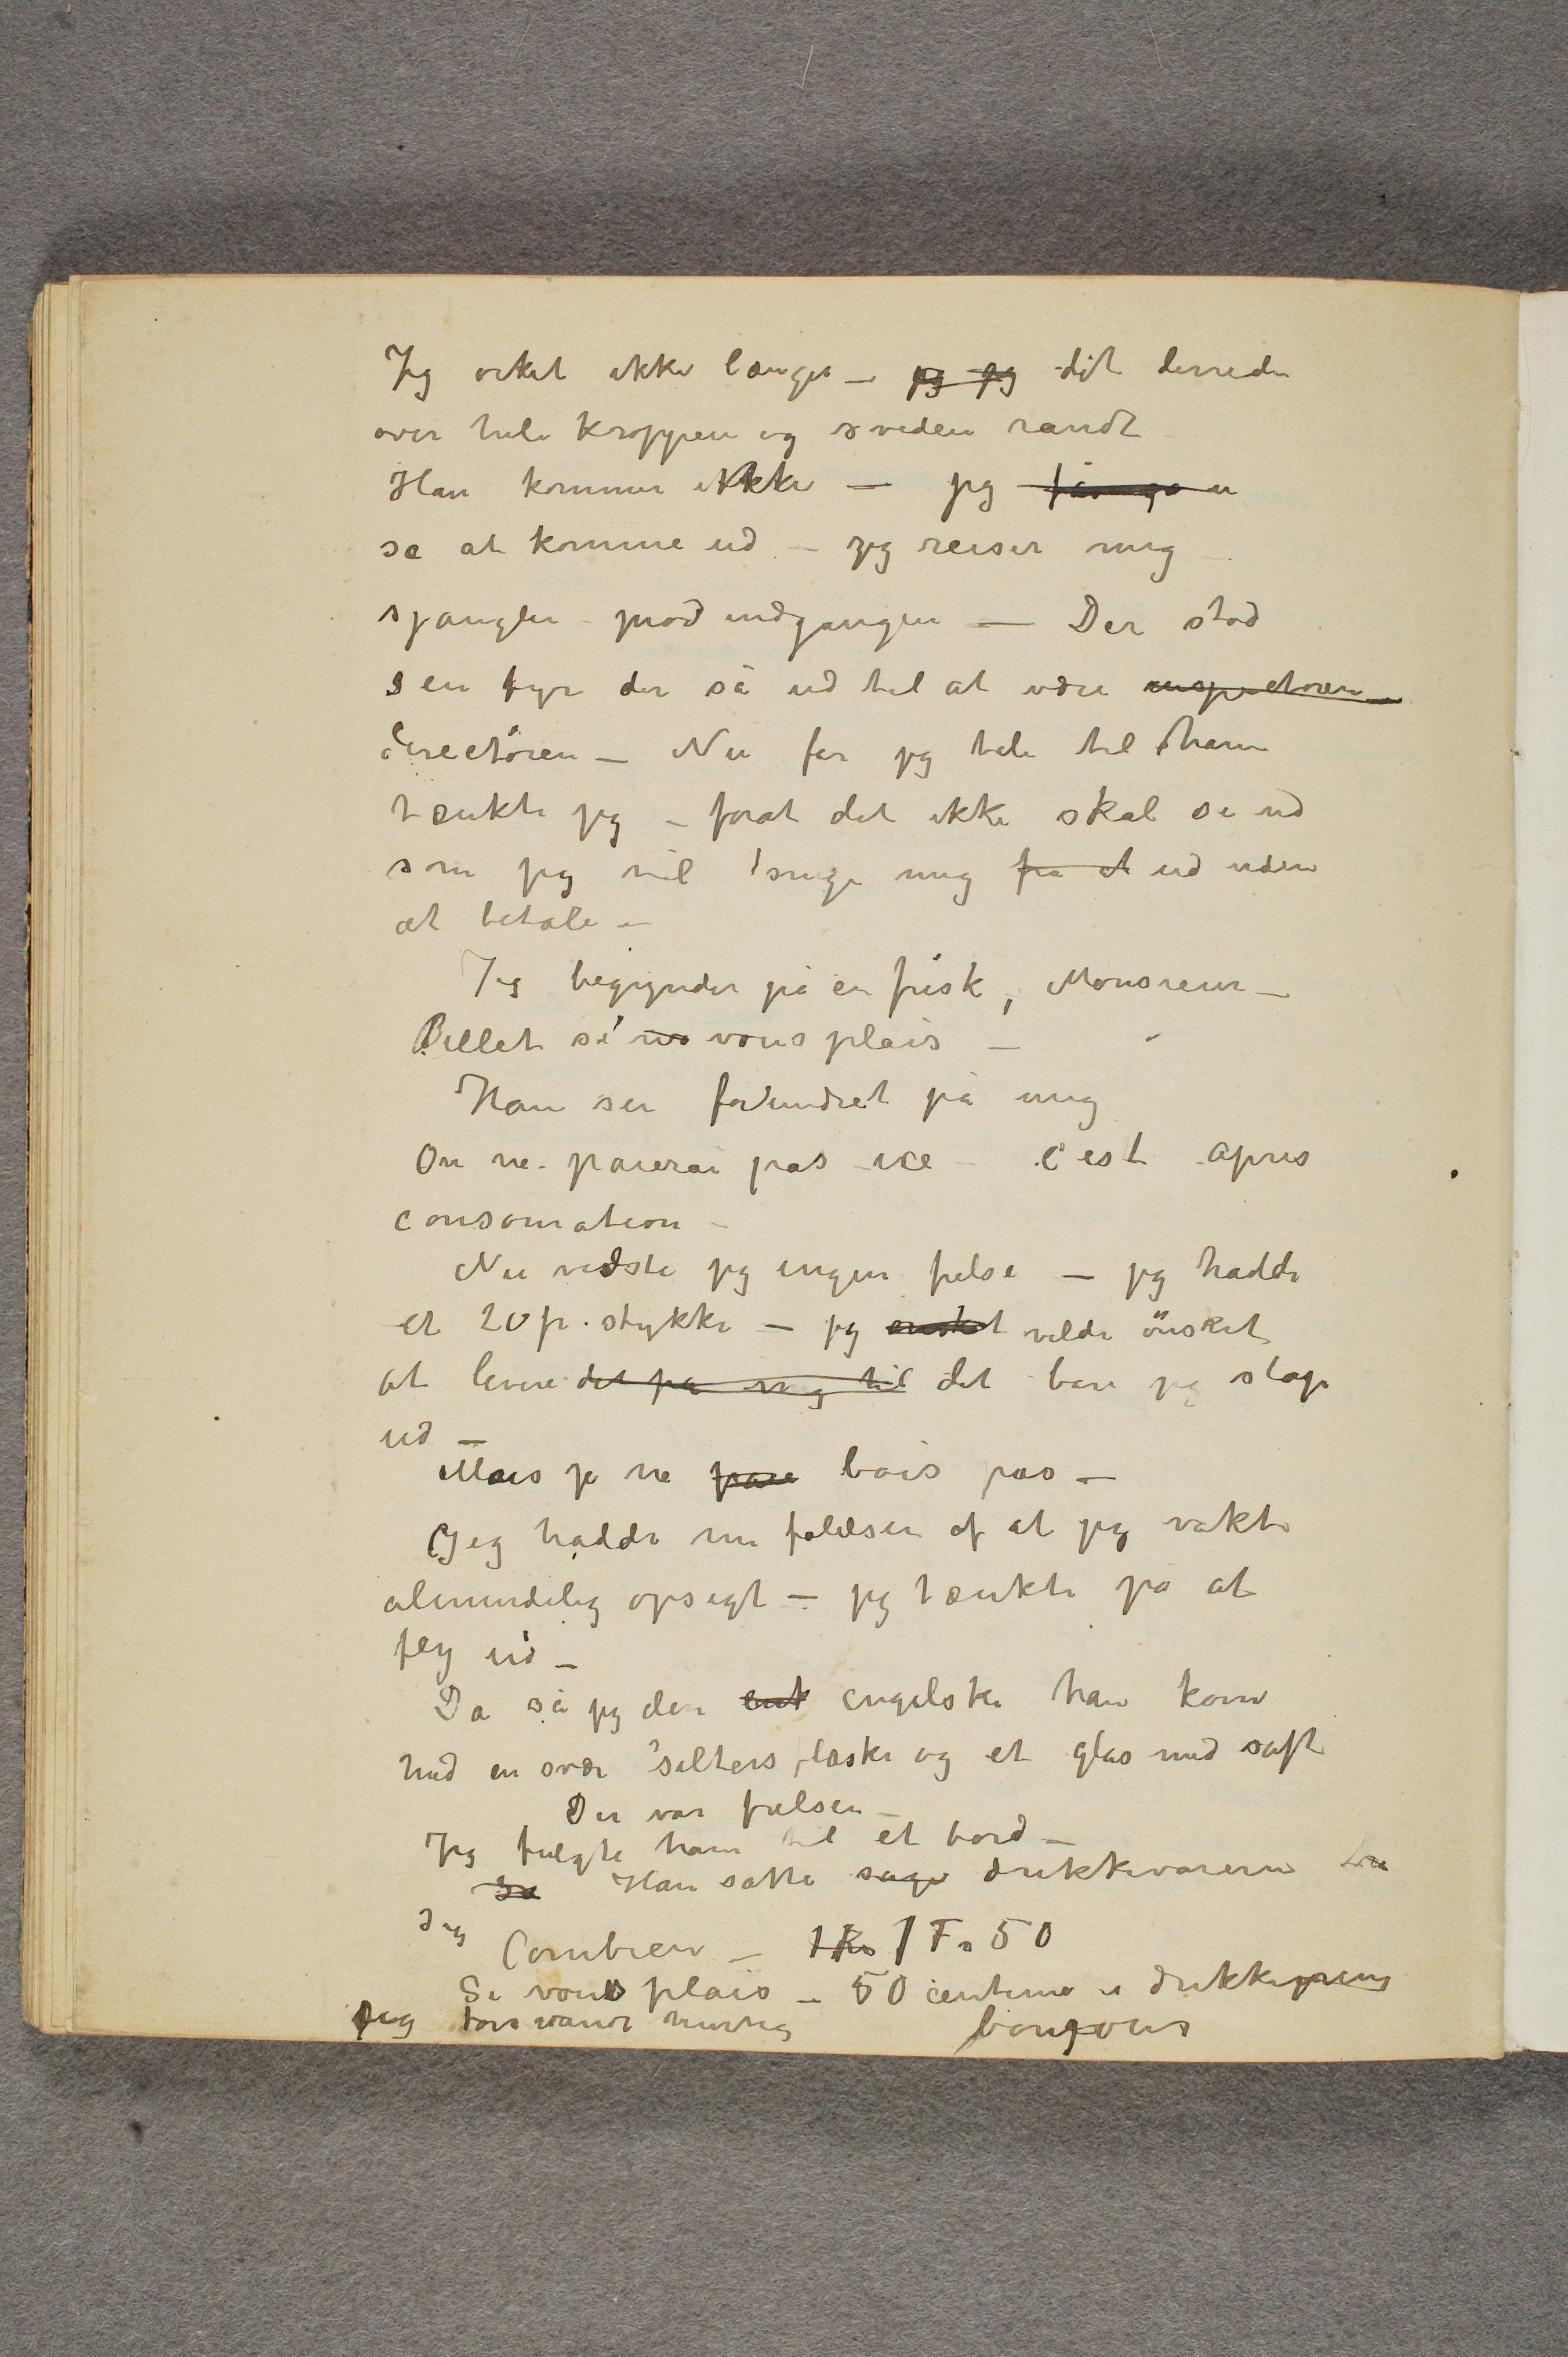 Jeg orket ikke længer – jeg jeg dit derreder
over hele kroppen og sveden randt
Han kommer ikke – jeg
se at komme ud – jeg reiser mig
sjangler mod indgangen – Der stod
en fyr der så ud til at være inspectøren
directøren – Nu får jeg tale til ham
tænkte jeg – forat det ikke skal se ud
som jeg vil snige mig fra et ud uden
at betale –
Jeg begynder på en frisk, Monsieur –
Billet si vous plais –
Han ser forundret på mig
On ne paierai pas ice – c'est apres
consomation –
Nu vidste jeg ingen frelse – jeg hadde
et 20 fr. stykke – jeg ønsket vilde önsket
at levere det på mig til det bare jeg slap
ud –
Mais je ne paie bois pas –
Jeg hadde nu følelsen af at jeg vakte
almindelig opsigt – jeg tænkte på at
fly ud –
Da så jeg den engelske han kom
med en svær selters flaske og et glas med saft
Der var frelsen –
Jeg fulgte ham til et bord –
Så Han satte sage drikkevarerne fra
sig
Combien – 1 Kr 1 Fr 50
Si vous plais – 50 centime i drikkepeng
Jeg forsvandt hurtig bonjour